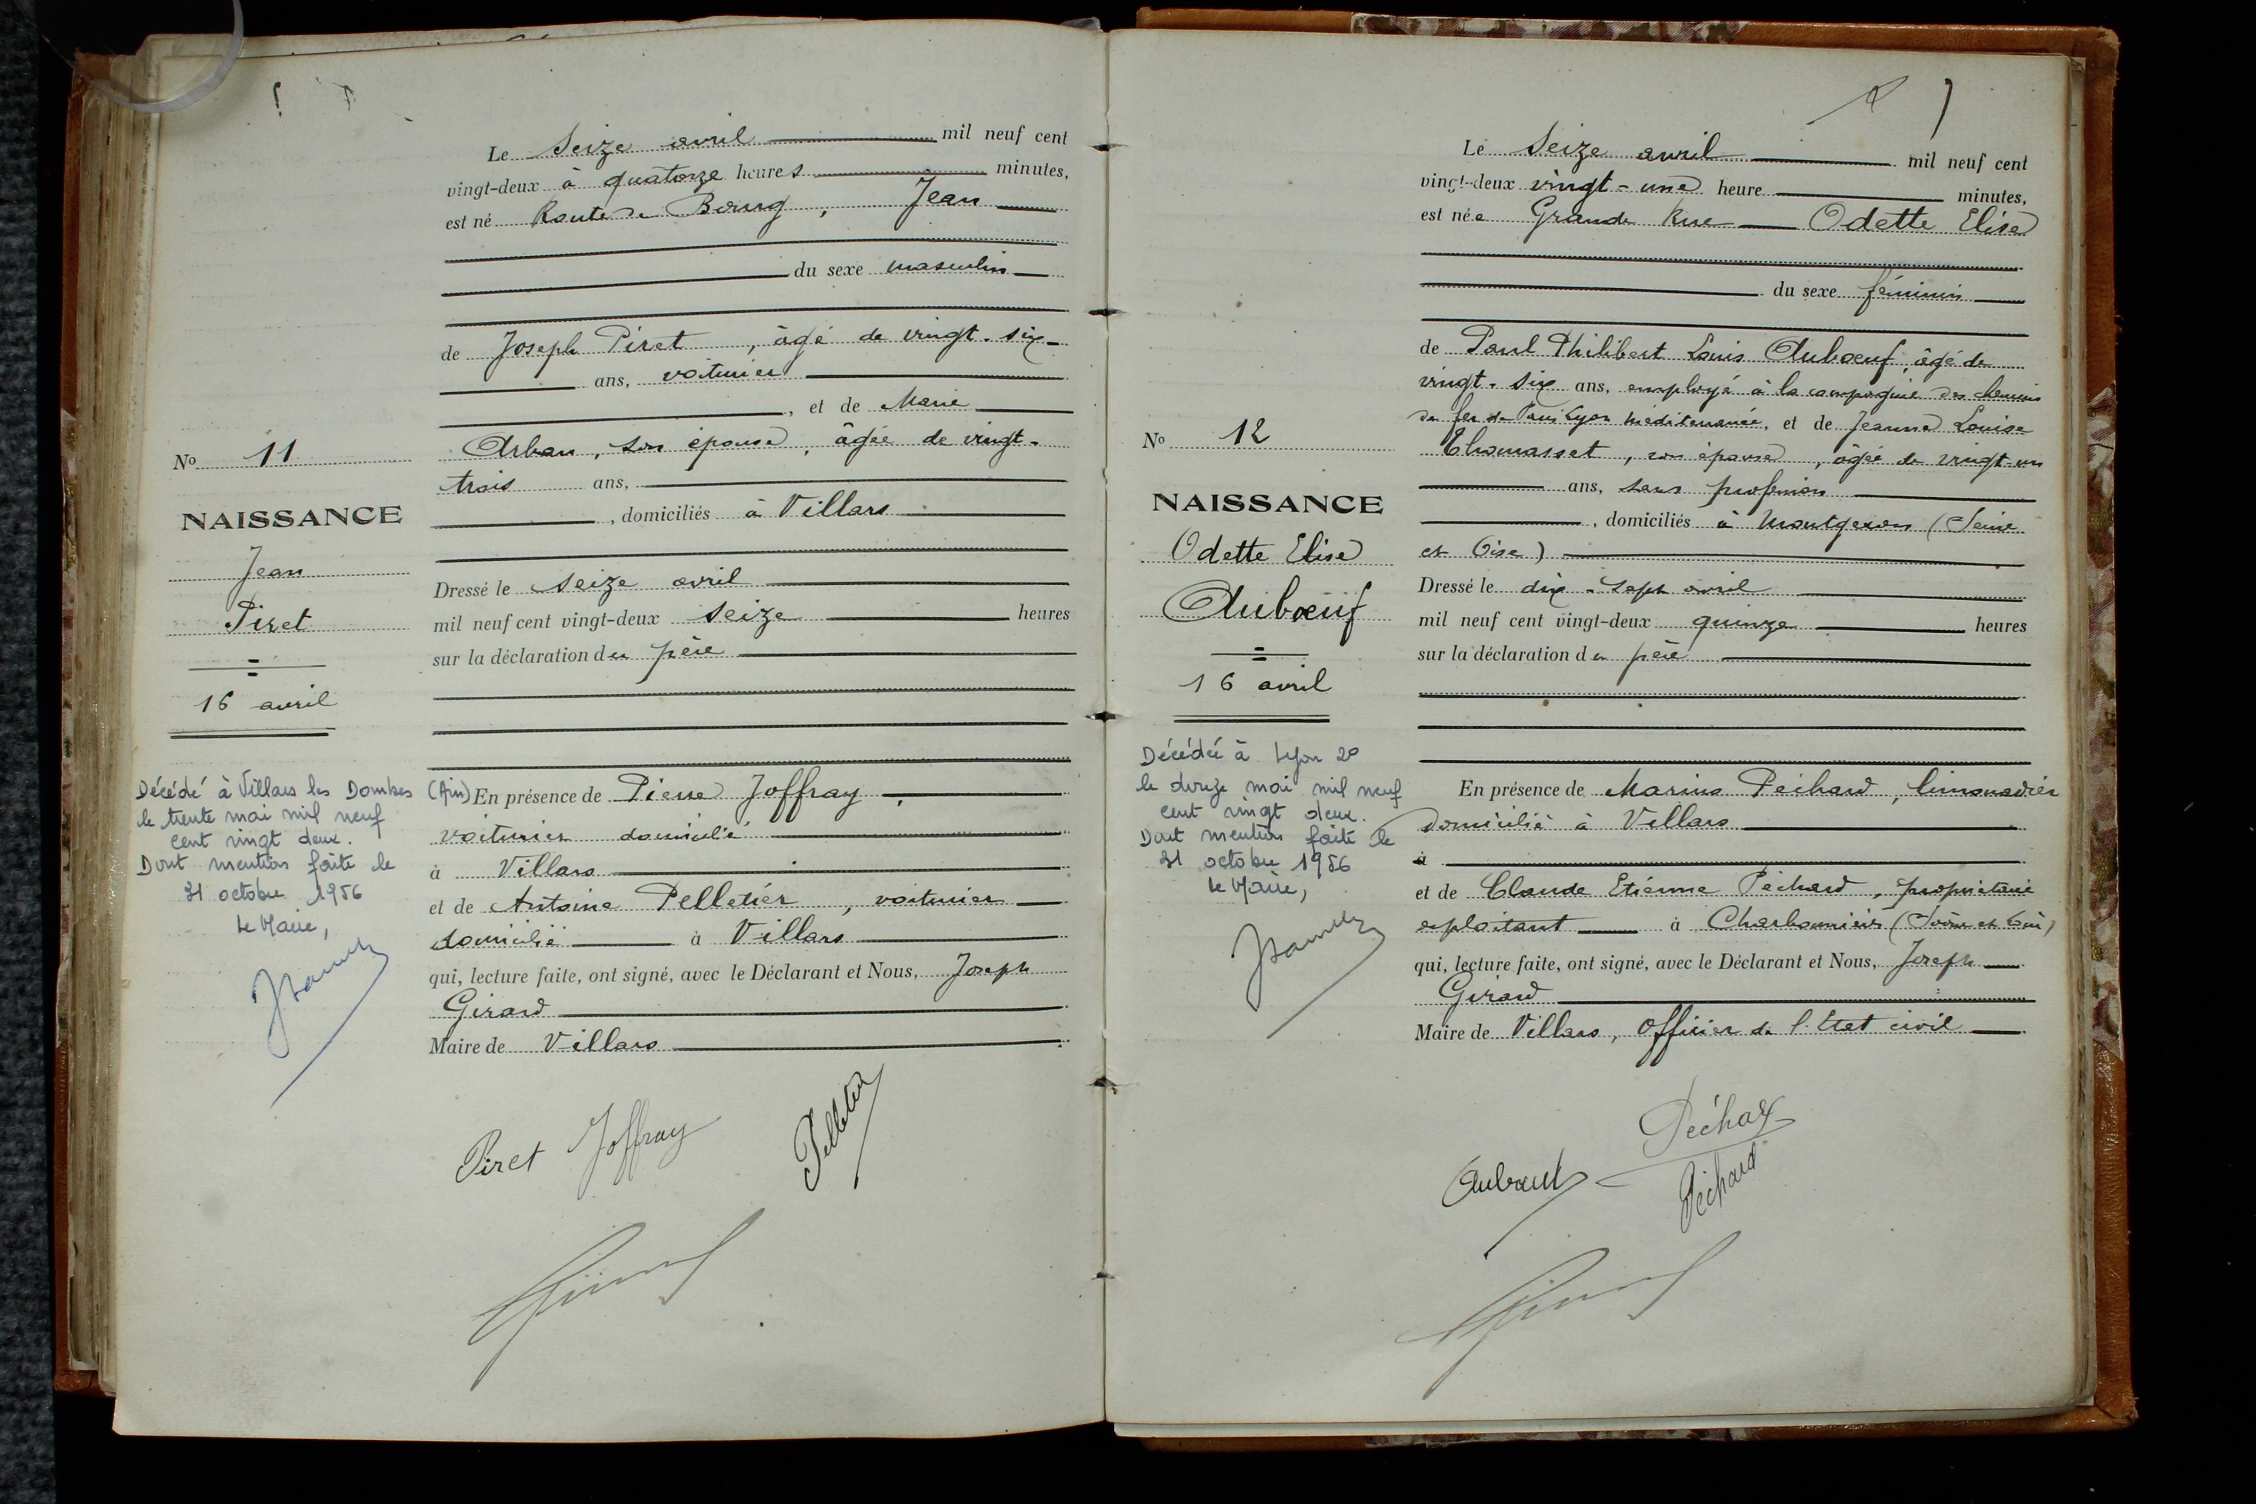 Le Seize avril mil neuf cent
vingt-deux à quatorze heures minutes,
est né Route de Bourg, Jean
du sexe masculin
de Joseph Piret, âgé de vingt-six
ans, voiturier
, et de Marie
Arban, son épouse, âgée de vingt-
trois ans,
, domiciliés à Villars
Dressé le seize avril
mil neuf cent vingt-deux seize heures
sur la déclaration du père
En présence de Pierre Joffray,
voiturier domicilié
à Villars
et de Antoine Pelletier, voiturier
domicilié à Villars
qui, lecture faite, ont signé, avec le Déclarant et Nous, Joseph
Girard
Maire de Villars
Piret Joffray Pelletier
No 11
NAISSANCE
Jean
Piret
16 avril
Décédé à Villars les Dombes (Ain)
le trente mai mil neuf
cent vingt deux.
Dont mention faite le
31 octobre 1956
Le Maire,
Le Seize avril mil neuf cent
vingt-deux vingt-une heure minutes,
est née Grande Rue Odette Elise
du sexe féminin
de Paul Philibert Louis Auboeuf, âgé de
vingt-six ans, employé à la compagnie des chemins
de fer de Paris Lyon Méditerranée, et de Jeanne Louise
Thomasset, son épouse, âgée de vingt-un
ans, sans profession
, domiciliés à Montgeron (Seine
et Oise)
Dressé le dix-sept avril
mil neuf cent vingt-deux quinze heures
sur la déclaration du père
En présence de Marius Péchard, limonadier
domicilié à Villars
à
et de Claude Etienne Péchard, propriétaire
exploitant à Charbonnières (Saône et Loire)
qui, lecture faite, ont signé, avec le Déclarant et Nous, Joseph
Girard
Maire de Villars, officier de l'Etat civil
Péchard
Auboeuf
Péchard
No 12
NAISSANCE
Odette Elise
Auboeuf
16 avril
Décédée à Lyon 2e
le douze mai mil neuf
cent vingt deux.
Dont mention faite le
31 octobre 1956
Le Maire,